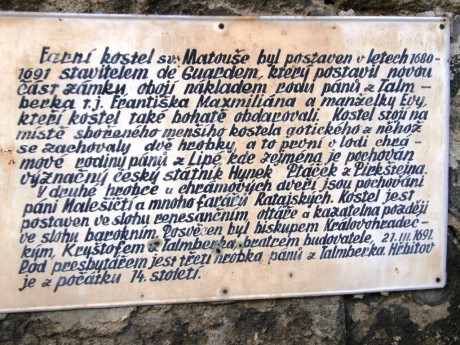 Farní kostel sv. Matouše byl postaven v letech 1680-
1691 stavitelem de Guardem, který postavil novou
část zámku, obojí nákladem rodu pánů z Talm-
berka t.j. Františka Maxmiliána a manželky Evy,
kteří kostel také bohatě obdarovali. Kostel stojí na
místě sbořeného menšího kostela gotického z něhož
se zachovaly dvě hrobky, a to první v lodi chrá-
mové rodiny pánů z Lipé, kde zejména je pochován
význačný český státník Hynek Ptáček z Pirkštejna.
V druhé hrobce u chrámových dveří jsou pochováni
páni Malešičtí a mnoho farářů Ratajských. Kostel jest
postaven ve slohu renesančním, oltáře a kazatelna později
ve slohu barokním. Posvěcen byl biskupem Královohradec-
kým, Kryštofem z Talmberka, bratrem budovatele, 21. III. 1691.
Pod presbytářem jest třetí hrobka pánů z Talmberka. Hřbitov
je z počátku 14. století.